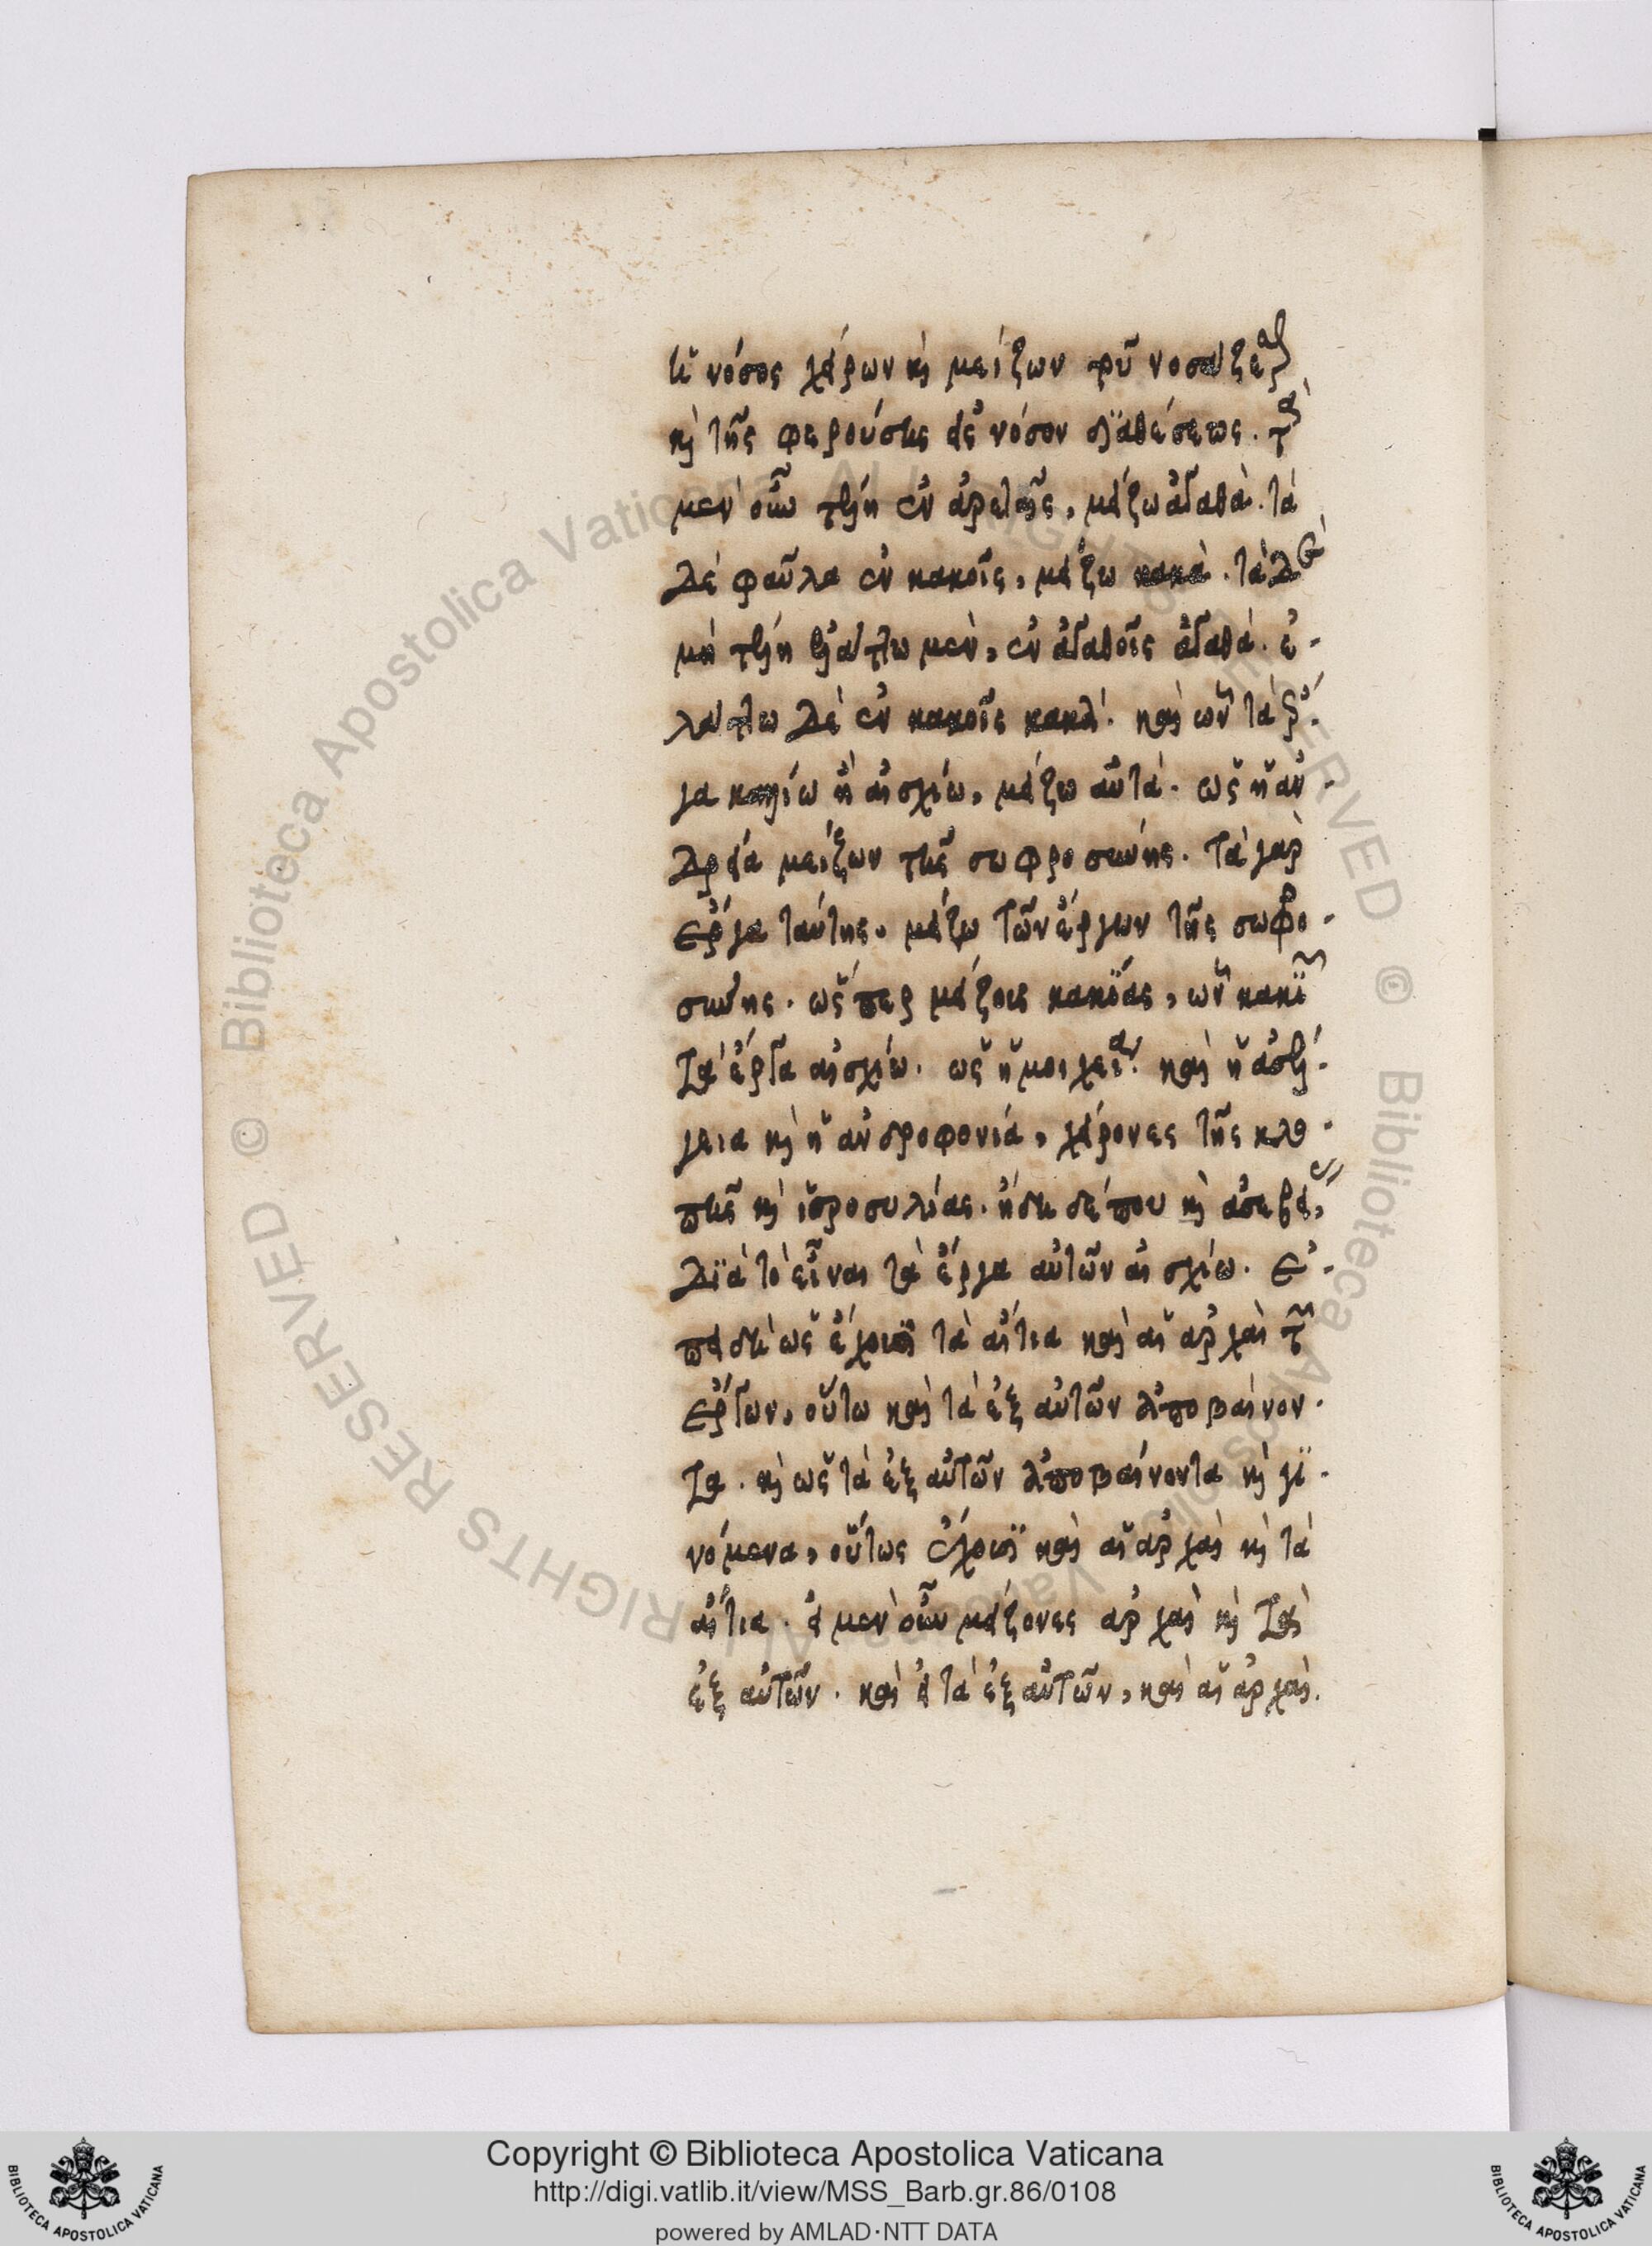 ἡ νόσος χείρων καὶ μείζων τοῦ νοσάζεσθαι
καὶ τῆς φερούσης εἰς νόσον διαθέσεως. τὰ
μὲν οὖν ἐν ἀρεταῖς, μείζω ἀγαθά. τὰ
δὲ φαῦλα ἐν κακοῖς, μείζω κακά. τὰ δὲ
μὴ ἐλάττω μὲν, ἐν ἀγαθοῖς ἀγαθά. ἐ-
λάττω δὲ ἐν κακοῖς κακά. καὶ ὧν τὰ ἔρ-
γα καλλίω ἢ αἰσχίω, μείζω αὐτά. ὡς ἡ ἀν-
δρεία μείζων τῆς σωφροσύνης. τὰ γὰρ
ἔργα ταύτης, μείζω τῶν ἔργων τῆς σωφρο-
σύνης. ὥσπερ μείζους κακίας, ὧν κακιῶν
τὰ ἔργα αἰσχίω. ὡς ἡ μοιχεία. καὶ ἡ ἀσέλ-
γεια καὶ ἡ ἀνδροφονία, χείρονες τῆς κλο-
πῆς καὶ ἱεροσυλίας. ἤδη δέ που καὶ ἀσεβείας,
διὰ τὸ εἶναι τὰ ἔργα αὐτῶν αἰσχίω. ἐ-
πειδὴ ὡς ἔχουσι τὰ αἴτια καὶ αἱ ἀρχαὶ τῶν
ἔργων, οὕτω καὶ τὰ ἐξ αὐτῶν ἀποβαίνον-
τα. καὶ ὡς τὰ ἐξ αὐτῶν ἀποβαίνοντα καὶ γι-
νόμενα, οὕτως ἔχουσι καὶ αἱ ἀρχαὶ καὶ τὰ
αἴτια. εἰ μὲν οὖν μείζονες ἀρχαὶ καὶ τὰ
ἐξ αὐτῶν. καὶ εἰ τὰ ἐξ αὐτῶν, καὶ αἱ ἀρχαί.
Copyright © Biblioteca Apostolica Vaticana
http://digi.vatlib.it/view/MSS_Barb.gr.86/0108
powered by AMLAD·NTT DATA